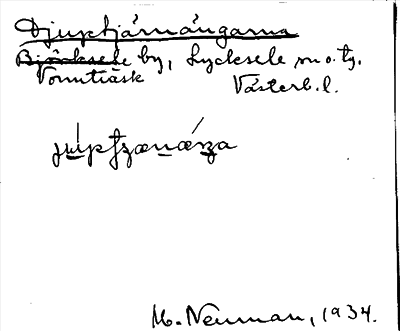 Djuptjärnängarna
Björksele by, Lycksele sn o. tg.
Vormträsk Västerb. l.
M. Neuman, 1934.